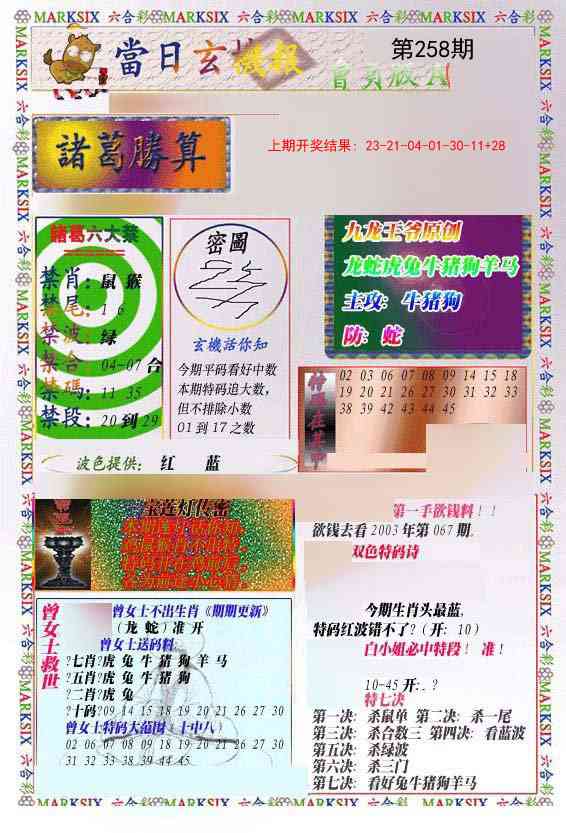 MARKSIX 六合彩MARKSIX 六合彩MARKSIX 六合彩MARKSIX 六合彩
當日玄機報
第258期
諸葛勝算
上期开奖结果: 23-21-04-01-30-11+28
諸葛六大禁
禁肖: 鼠 猴
禁尾: 1 6
禁波: 绿
禁合: 04-07 合
禁碼: 11 35
禁段: 20 到 29
密圖
玄機活你知
今期平码看好中数
本期特码追大数,
但不排除小数
01 到 17 之数
波色提供: 红 蓝
九龙王爷原创
龙蛇虎兔牛猪狗羊马
主攻: 牛猪狗
防: 蛇
02 03 06 07 08 09 14 15 18
19 20 21 26 27 30 31 32 33
38 39 42 43 44 45
宝莲灯传密
第一手欲钱料!!
欲钱去看 2003 年第 067 期。
双色特码诗
曾女士救世
曾女士不出生肖《期期更新》
(龙 蛇) 准 开
曾女士送码料
?七肖?虎 兔 牛 猪 狗 羊 马
?五肖?虎 兔 牛 猪 狗
?二肖?虎 兔
?十码?09 14 15 18 19 20 21 26 27 30
曾女士特码大范围(十中八)
02 06 07 08 09 18 19 20 21 26 27 30
31 32 33 38 39 44 45
今期生肖头最蓝,
特码红波错不了? (开: 10)
白小姐必中特段! 准!
10-45 开: . ?
特七决
第一决: 杀鼠单 第二决: 杀一尾
第三决: 杀合数三 第四决: 看蓝波
第五决: 杀绿波
第六决: 杀三门
第七决: 看好兔牛猪狗羊马
MARKSIX 六合彩MARKSIX 六合彩MARKSIX 六合彩MARKSIX